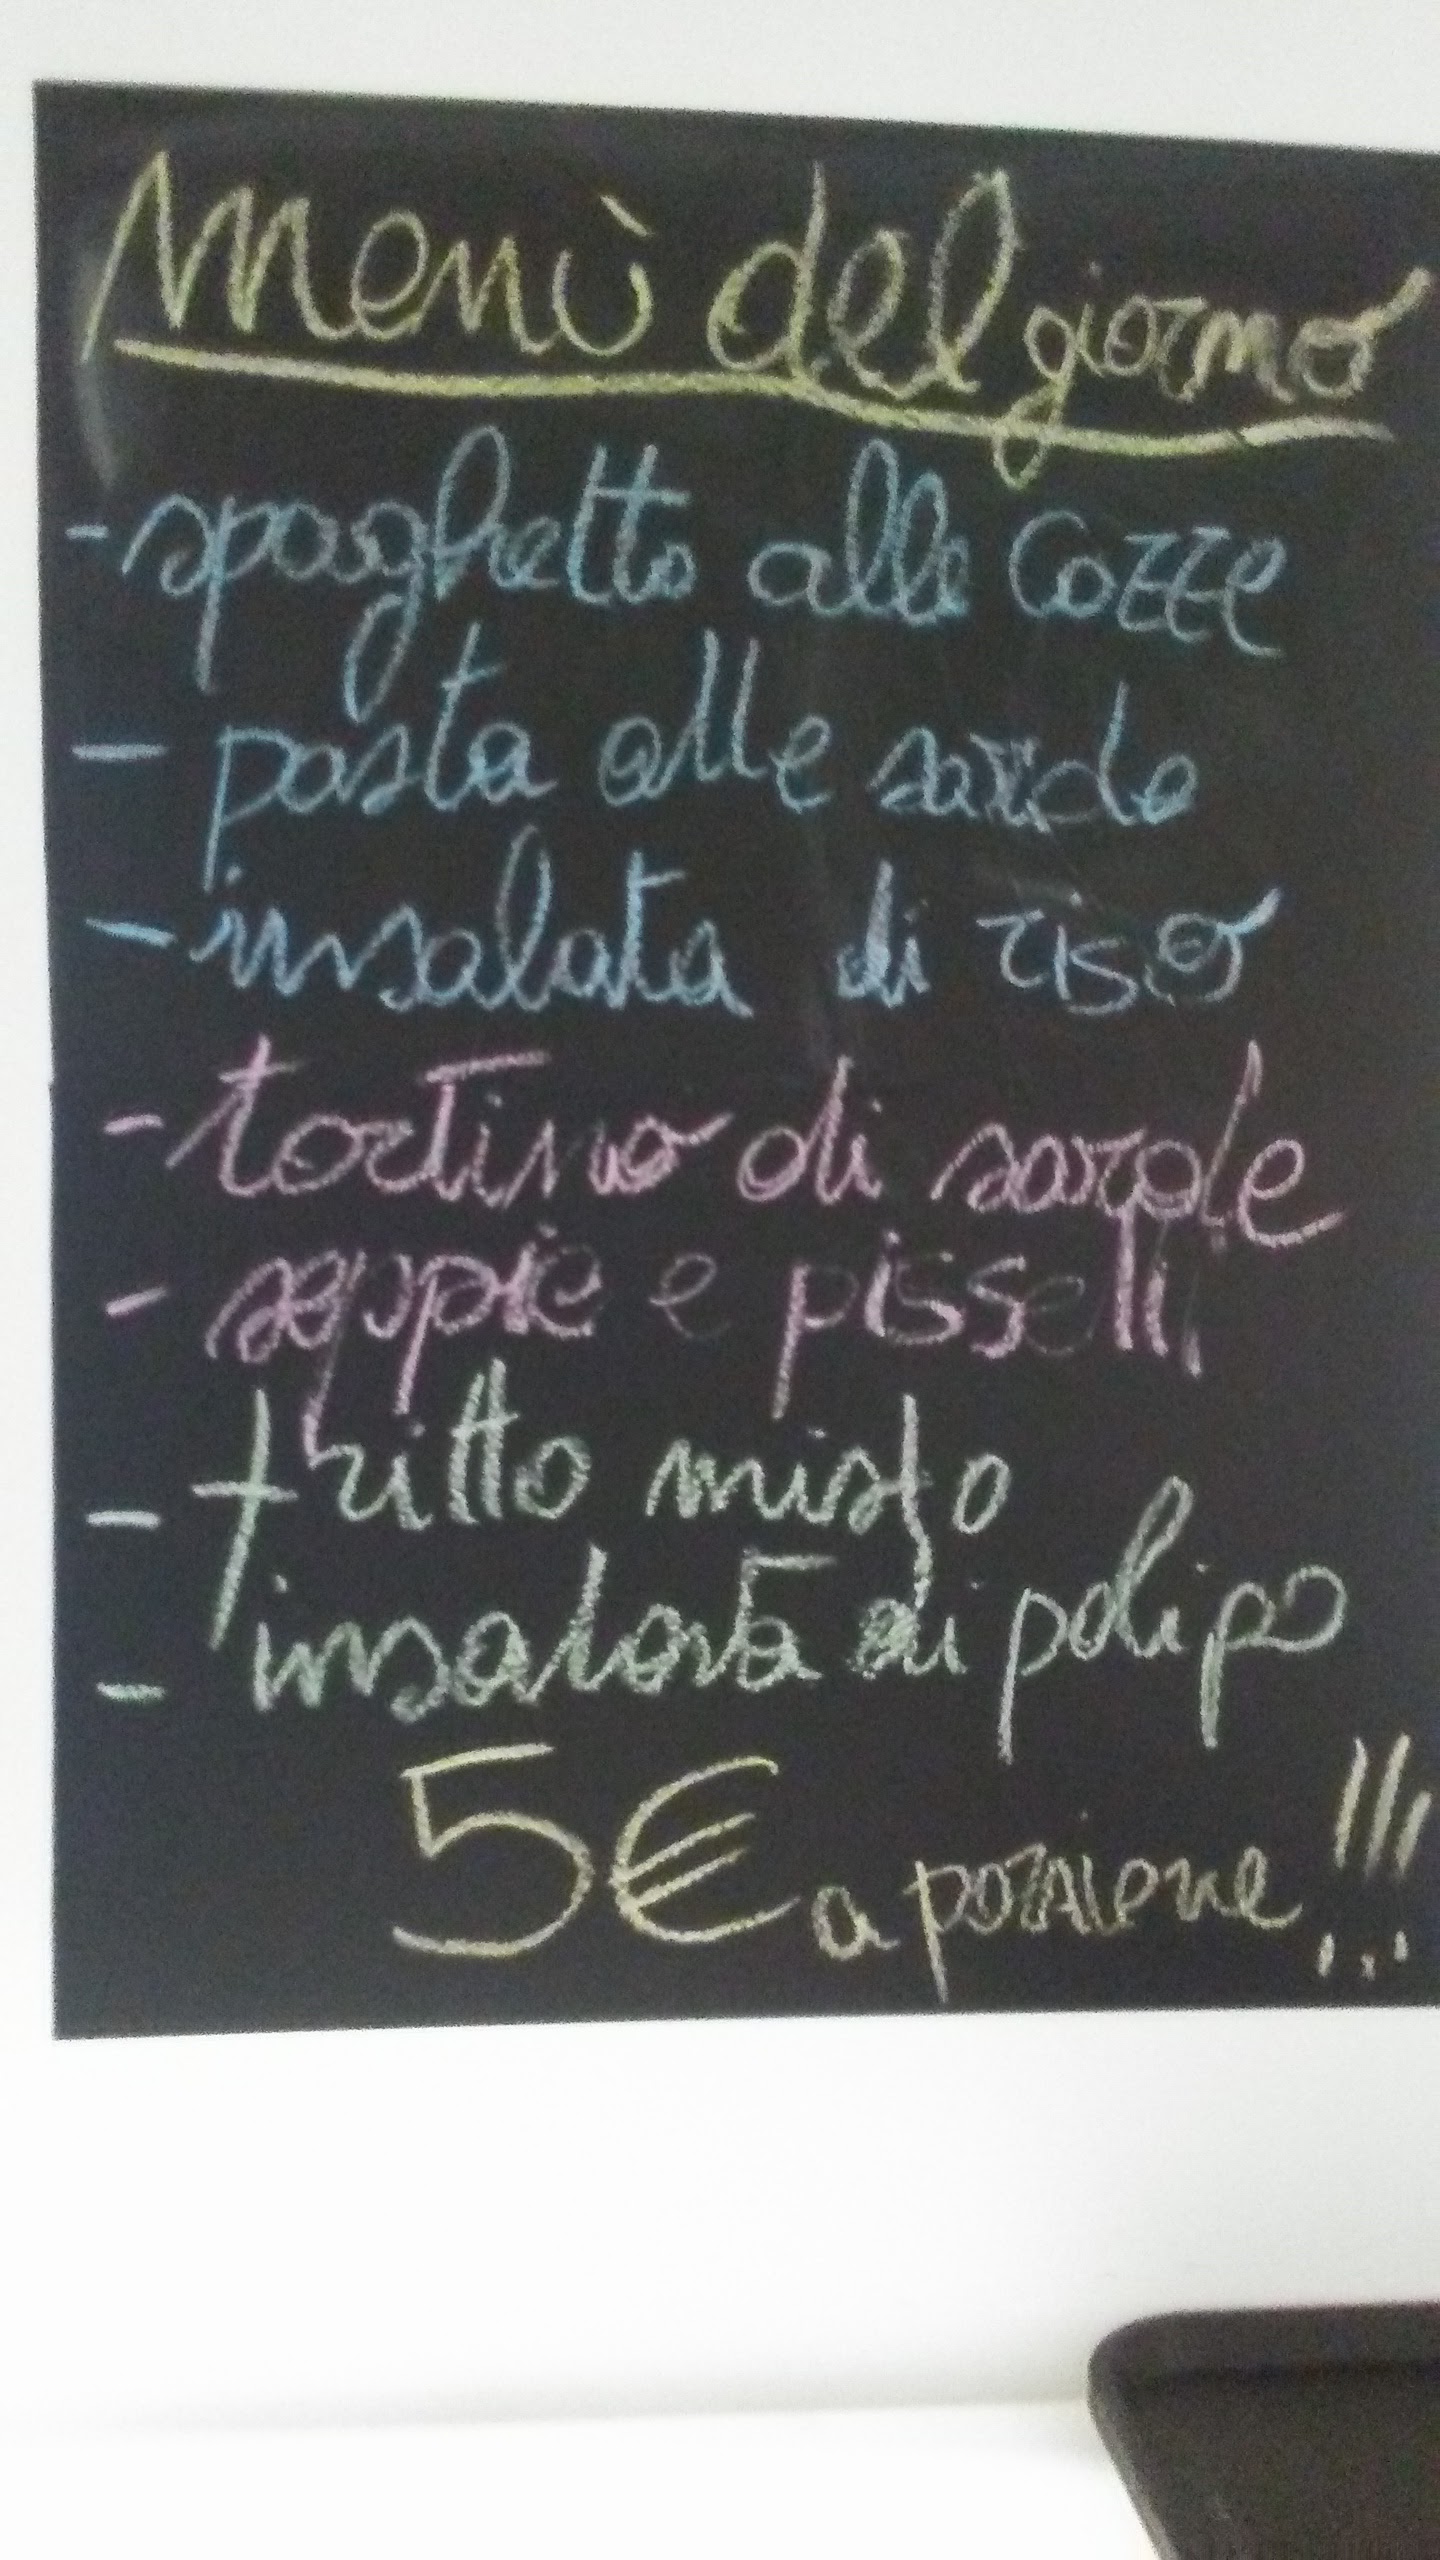 Menù del giorno
- spaghetto alle cozze
- pasta alle sarde
- insalata di riso
- tortino di sarde
- seppie e piselli
- fritto misto
- insalata di polipo
5€ a porzione!!!